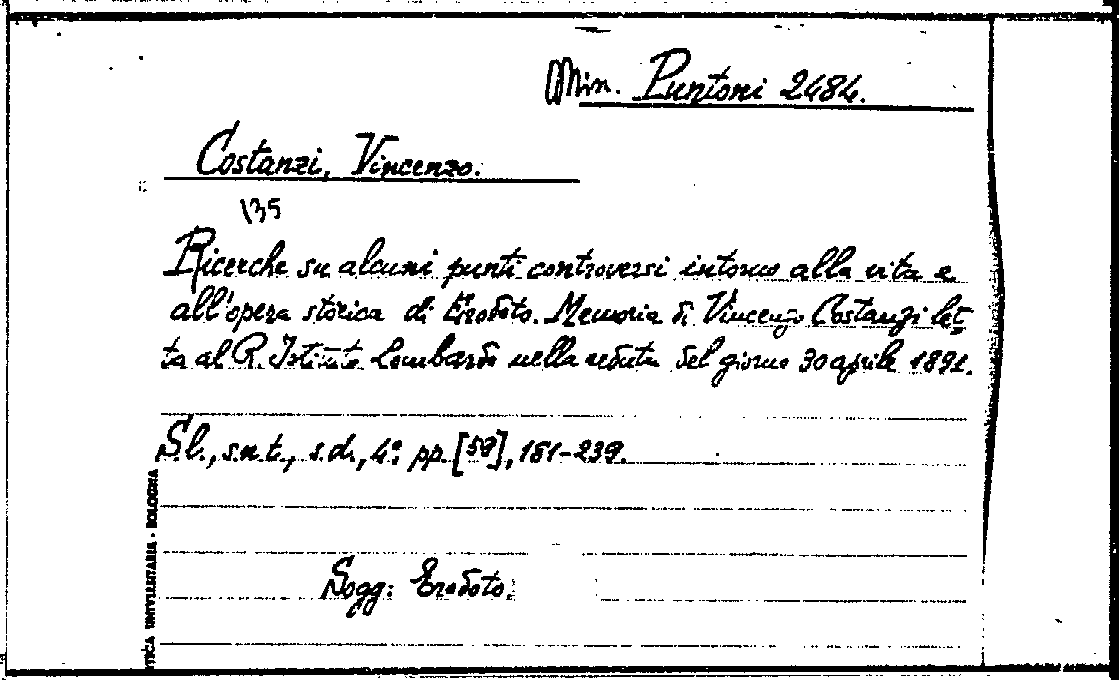 Min. Puntoni 2484.
Costanzi, Vincenzo.
135
Ricerche su alcuni punti controversi intorno alla vita e
all'opera storica di Erodoto. Memoria di Vincenzo Costanzi let-
ta al R. Istituto Lombardo nella seduta del giorno 30 aprile 1891.
S.l., s.n.t., s.d., 4º. pp. [59], 181-239.
Sogg: Erodoto.
TECA UNIVERSITARIA - BOLOGNA